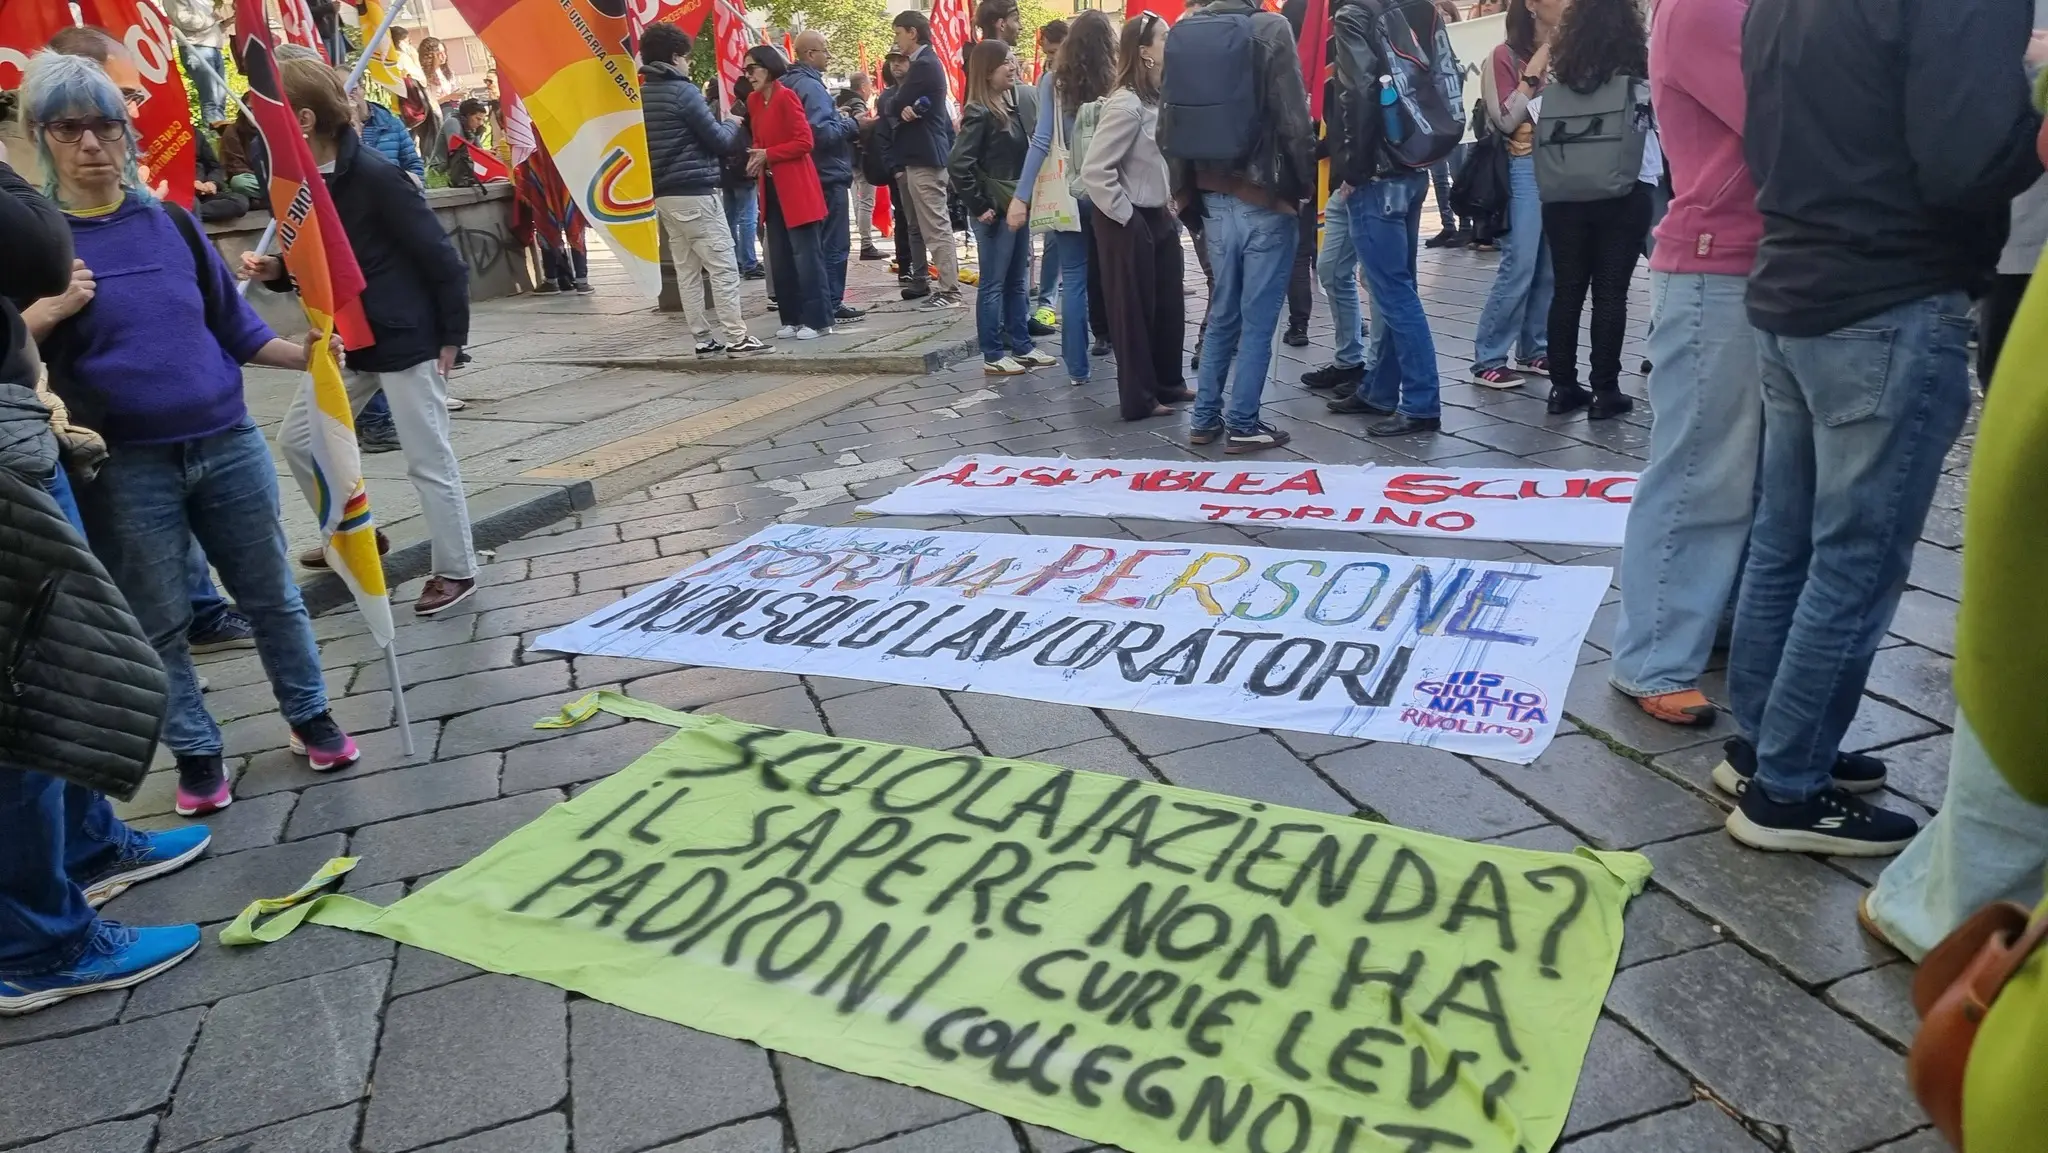 CONFEDE
DEI COMITAT
CONFEDER
NE UNITARIA DI BASE
IONE U
ASSEMBLEA SCUO
TORINO
La scuola
FORMA PERSONE
NON SOLO LAVORATORI
IIS
GIULIO
NATTA
RIVOLI(TO)
SCUOLA/AZIENDA?
iL SAPERE NON HA
PADRONi CURIE LEVi
COLLEGNO